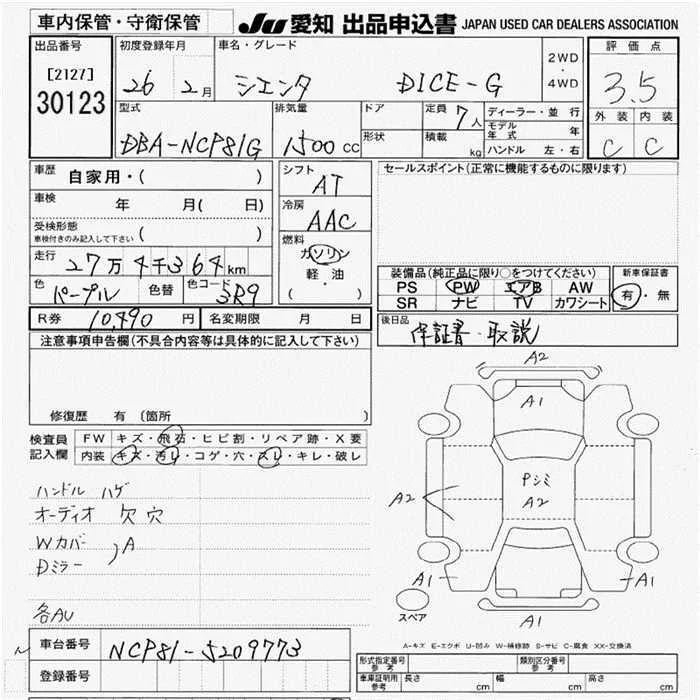 車内保管・守衛保管
JU 愛知 出品申込書 JAPAN USED CAR DEALERS ASSOCIATION
出品番号
[2127]
30123
初度登録年月
26 2月
車名・グレード
シエンタ DICE-G
2WD
・
4WD
評価点
3.5
外装 内装
C C
型式
DBA-NCP81G
排気量
1500 cc
ドア
形状
定員 7人
積載 kg
ディーラー・並行
モデル年式 年
ハンドル 左・右
車歴 自家用・( )
車検 年 月( 日)
受検形態
車検付きのみ記入して下さい ( )
走行 27万4千364km
色 パープル 色替 色コード 3R9
シフト
AT
冷房
AAC
燃料
ガソリン
軽・油
( )
セールスポイント(正常に機能するものに限ります)
装備品(純正品に限り○をつけてください)
PS PW エアB AW
SR ナビ TV カワシート
新車保証書
有・無
R券 10,490 円 名変期限 月 日
後日品
保証書・取説
注意事項申告欄(不具合内容等は具体的に記入して下さい)
修復歴 有 (箇所 )
検査員
記入欄
FW キズ・飛石・ヒビ割・リペア跡・X要
内装 キズ・汚レ・コゲ・穴・スレ・キレ・破レ
ハンドル ハゲ
オーディオ 欠 穴
Wカバー
Dミラー
A
各AU
A2
A1
Pシミ
A2
A2
A1
A1
A1
スペア
A-キズ E-エクボ U-凹み W-補修跡 S-サビ C-腐食 XX-交換済
車台番号 NCP81-5209773
登録番号
形式指定番号
参考
類別区分番号
参考
車庫証明用
参考
長さ cm 幅 cm 高さ cm